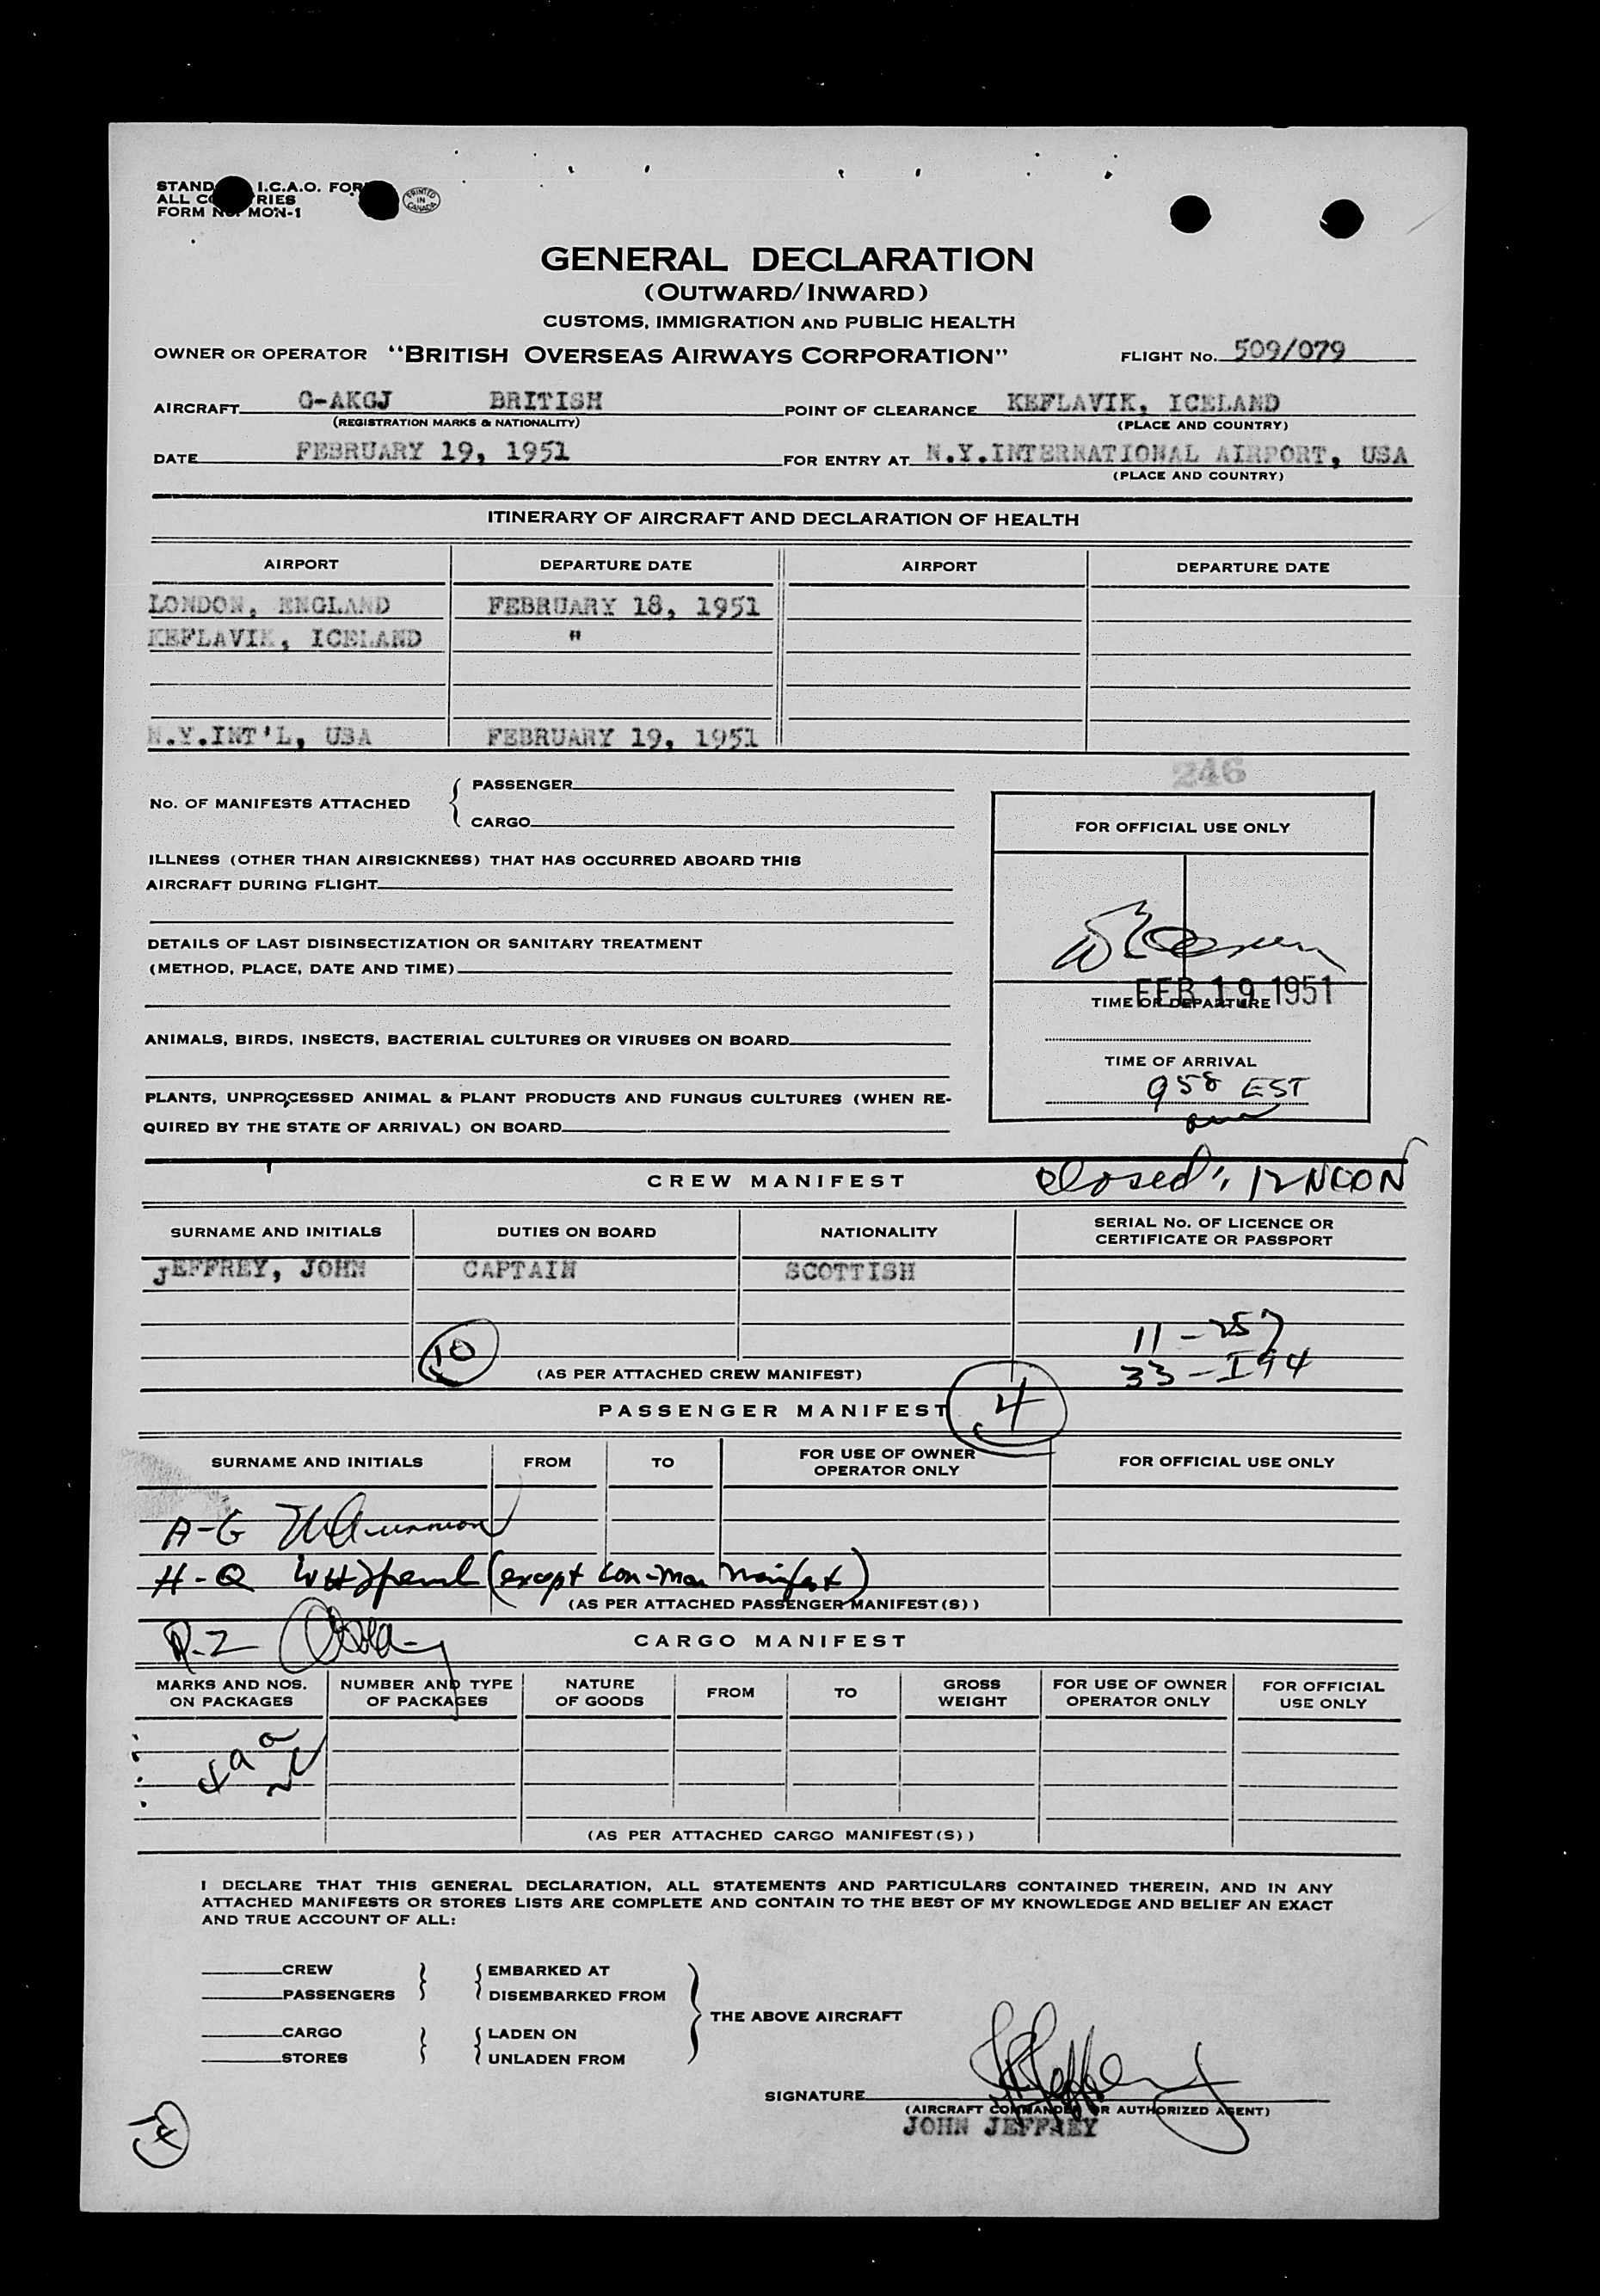 STAND I.C.A.O. FOR
ALL CO TRIES
FORM NO. MON-1
PRINTED IN CANADA
GENERAL DECLARATION
(OUTWARD/INWARD)
CUSTOMS, IMMIGRATION AND PUBLIC HEALTH
OWNER OR OPERATOR "BRITISH OVERSEAS AIRWAYS CORPORATION" FLIGHT No. 509/079
AIRCRAFT G-AKGJ BRITISH POINT OF CLEARANCE KEFLAVIK, ICELAND
(REGISTRATION MARKS & NATIONALITY) (PLACE AND COUNTRY)
DATE FEBRUARY 19, 1951 FOR ENTRY AT N.Y.INTERNATIONAL AIRPORT, USA
(PLACE AND COUNTRY)
ITINERARY OF AIRCRAFT AND DECLARATION OF HEALTH
AIRPORT DEPARTURE DATE AIRPORT DEPARTURE DATE
LONDON, ENGLAND FEBRUARY 18, 1951
KEFLAVIK, ICELAND "
N.Y.INT'L, USA FEBRUARY 19, 1951
246
No. OF MANIFESTS ATTACHED { PASSENGER
CARGO
FOR OFFICIAL USE ONLY
ILLNESS (OTHER THAN AIRSICKNESS) THAT HAS OCCURRED ABOARD THIS
AIRCRAFT DURING FLIGHT
DETAILS OF LAST DISINSECTIZATION OR SANITARY TREATMENT
(METHOD, PLACE, DATE AND TIME)
FEB 19 1951
TIME OF DEPARTURE
ANIMALS, BIRDS, INSECTS, BACTERIAL CULTURES OR VIRUSES ON BOARD
TIME OF ARRIVAL
958 EST
PLANTS, UNPROCESSED ANIMAL & PLANT PRODUCTS AND FUNGUS CULTURES (WHEN RE-
QUIRED BY THE STATE OF ARRIVAL) ON BOARD
CREW MANIFEST Closed: 12 NOON
SURNAME AND INITIALS DUTIES ON BOARD NATIONALITY SERIAL No. OF LICENCE OR
CERTIFICATE OR PASSPORT
JEFFREY, JOHN CAPTAIN SCOTTISH
11-257
10 33-I94
(AS PER ATTACHED CREW MANIFEST)
PASSENGER MANIFEST 4
SURNAME AND INITIALS FROM TO FOR USE OF OWNER
OPERATOR ONLY FOR OFFICIAL USE ONLY
A-G
H-Q (except Con-Man Manifest)
(AS PER ATTACHED PASSENGER MANIFEST(S))
R-Z
CARGO MANIFEST
MARKS AND NOS.
ON PACKAGES NUMBER AND TYPE
OF PACKAGES NATURE
OF GOODS FROM TO GROSS
WEIGHT FOR USE OF OWNER
OPERATOR ONLY FOR OFFICIAL
USE ONLY
(AS PER ATTACHED CARGO MANIFEST(S))
I DECLARE THAT THIS GENERAL DECLARATION, ALL STATEMENTS AND PARTICULARS CONTAINED THEREIN, AND IN ANY
ATTACHED MANIFESTS OR STORES LISTS ARE COMPLETE AND CONTAIN TO THE BEST OF MY KNOWLEDGE AND BELIEF AN EXACT
AND TRUE ACCOUNT OF ALL:
CREW EMBARKED AT
PASSENGERS DISEMBARKED FROM
THE ABOVE AIRCRAFT
CARGO LADEN ON
STORES UNLADEN FROM
SIGNATURE
(AIRCRAFT COMMANDER OR AUTHORIZED AGENT)
JOHN JEFFREY